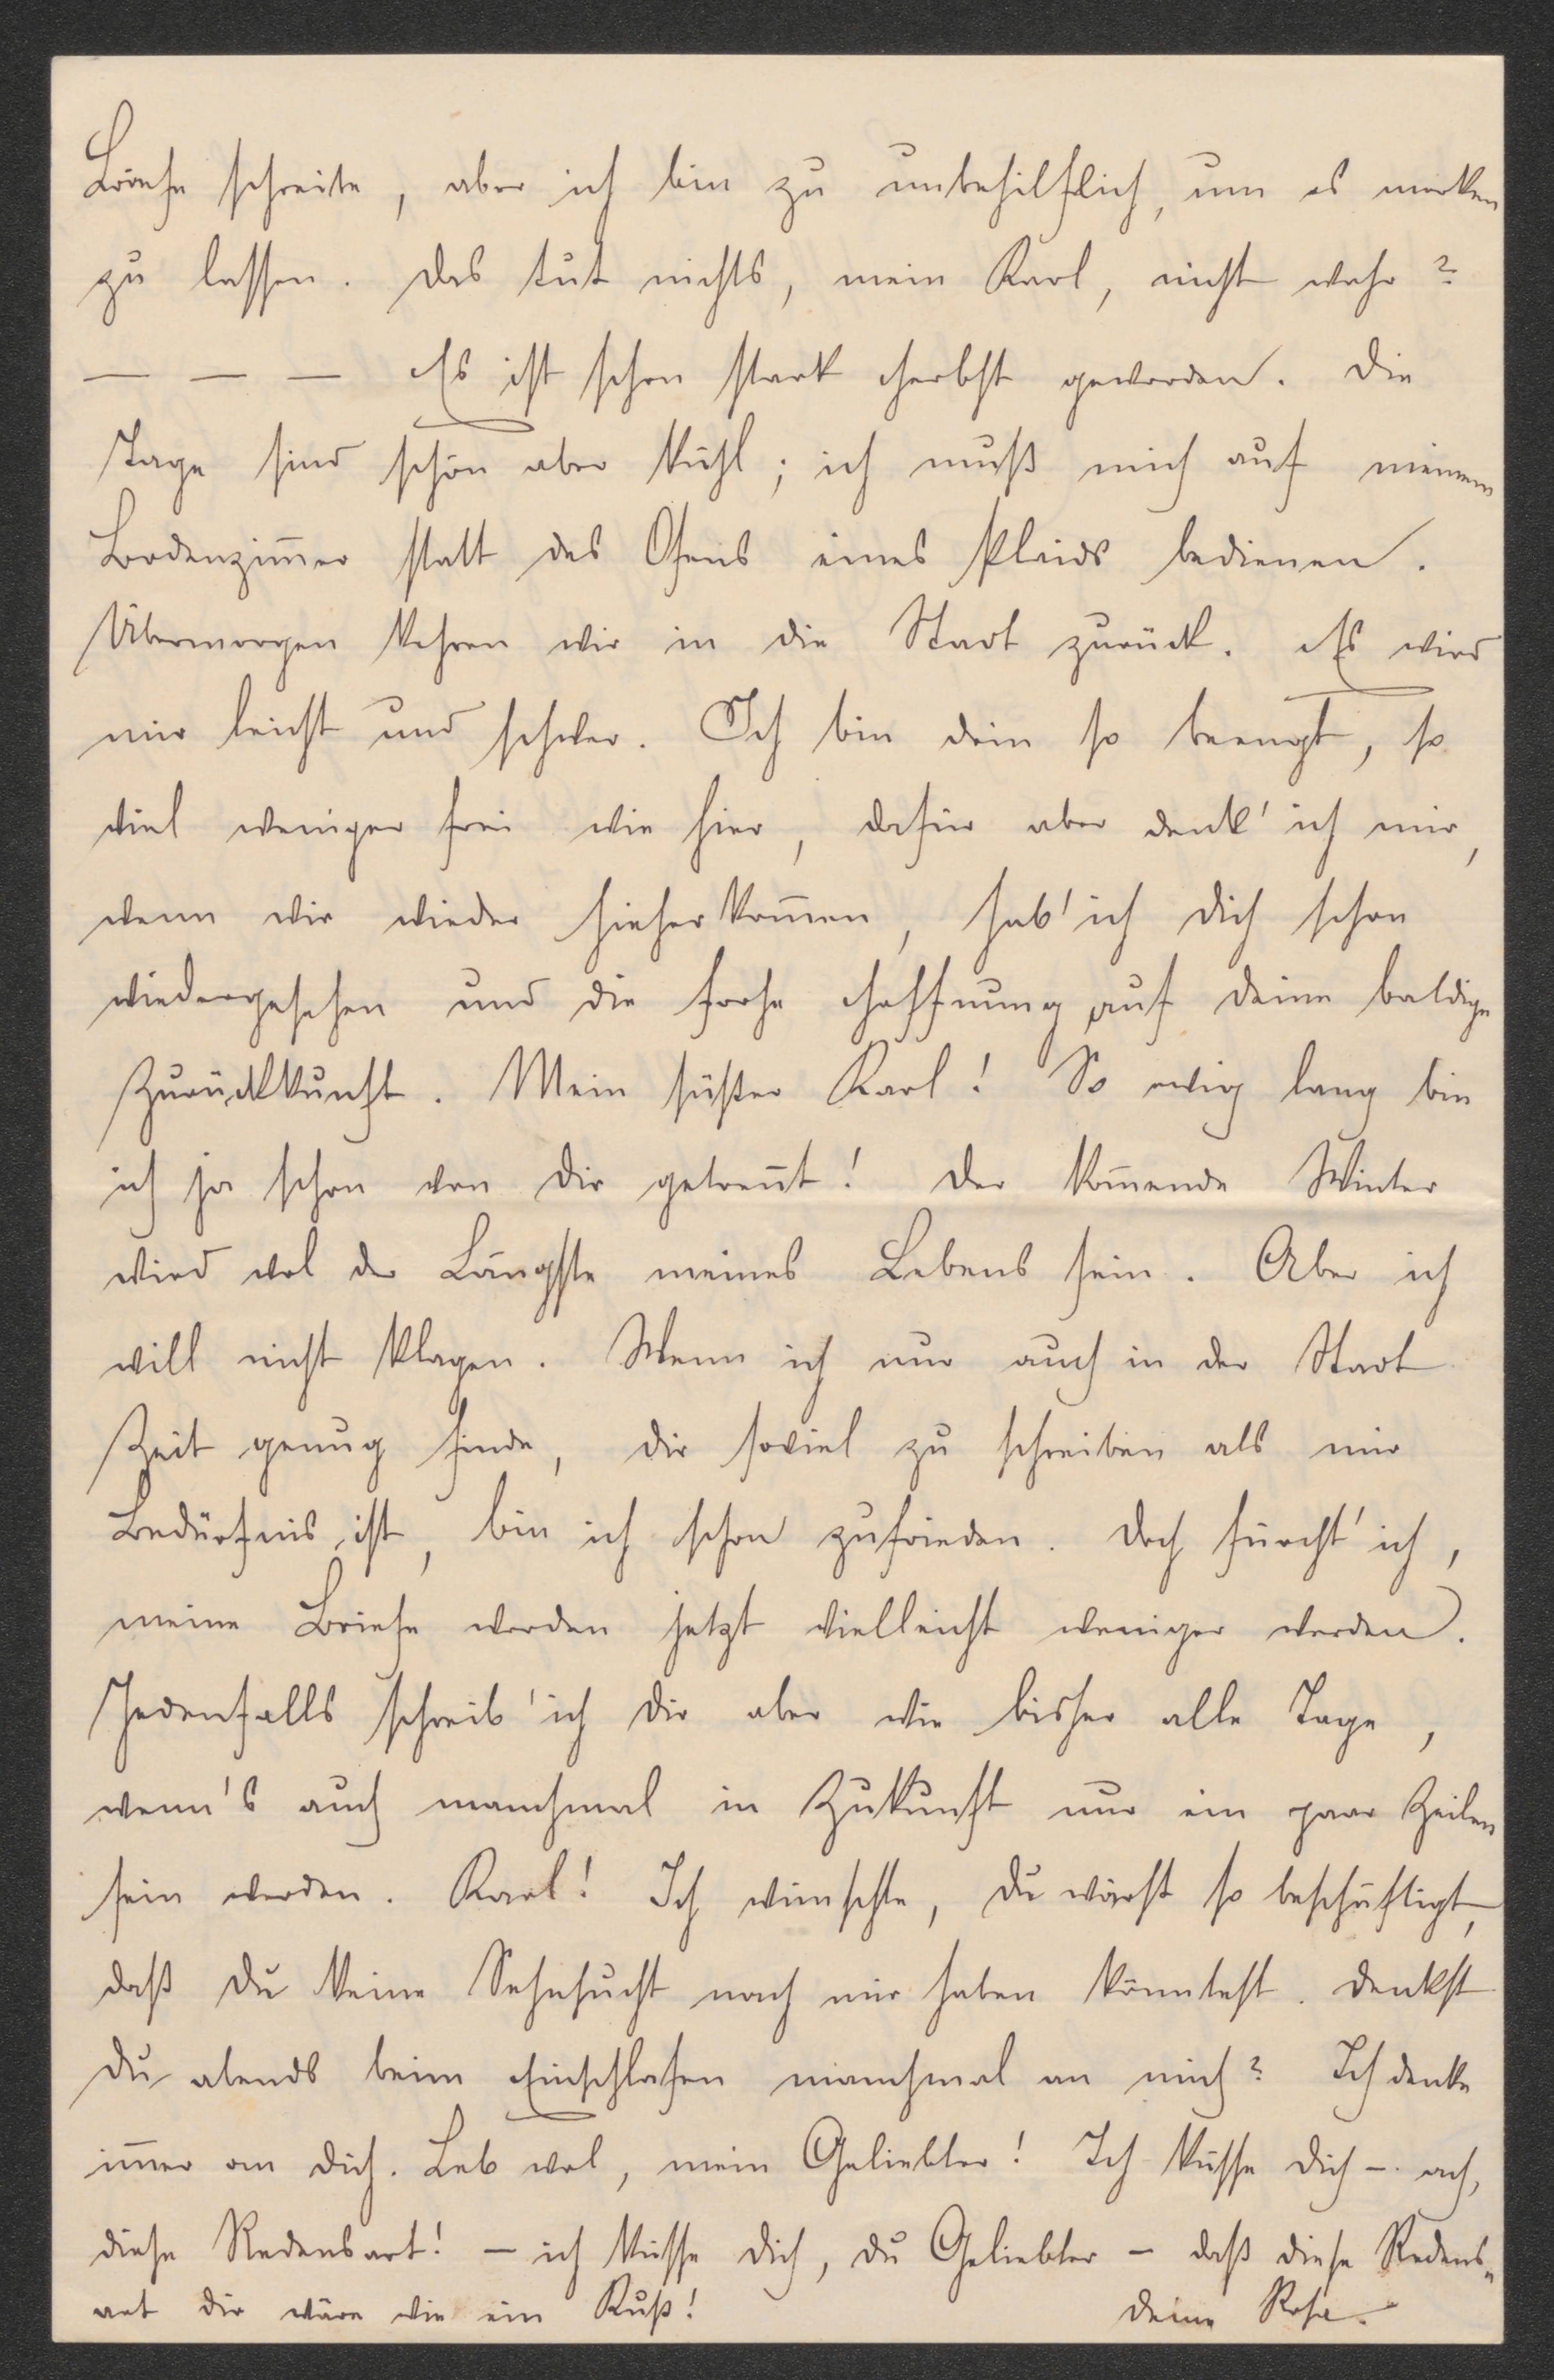 Briefe schreibe, aber ich bin zu unbehilflich, um es merken
zu lassen. Das tut nichts, mein Karl, nicht wahr?
— — — Es ist schon stark Herbst geworden. Die
Tage sind schön aber kühl; ich muß mich auf meinem
Bodenzim̄er statt des Ofens eines Plaids bedienen.
Übermorgen kehren wir in die Stadt zurück. Es wird
mir leicht und schwer. Ich bin drin so beengt, so
viel weniger frei wie hier, dafür aber denk' ich mir,
wenn wir wieder hieher kom̄en, hab' ich dich schon
wiedergesehen und die frohe Hoffnung auf deine baldige
Zurückkunft. Mein süßer Karl! So ewig lang bin
ich ja schon von dir getren̄t! Der kom̄ende Winter
wird wol der Längste meines Lebens sein. Aber ich
will nicht klagen. Wenn ich nur auch in der Stadt
Zeit genug finde, dir soviel zu schreiben als mir
Bedürfnis ist, bin ich schon zufrieden. Doch fürcht' ich,
meine Briefe werden jetzt vielleicht weniger werden.
Jedenfalls schreib' ich dir aber wie bisher alle Tage,
wenn's auch manchmal in Zukunft nur ein paar Zeilen
sein werden. Karl! Ich wünschte, du wärst so beschäftigt,
daß du keine Sehnsucht nach mir haben könntest. Denkst
du abends beim Einschlafen manchmal an mich? Ich denke
im̄er an dich. Leb wol, mein Geliebter! Ich küsse dich – ach,
diese Redensart! – ich küsse dich, du Geliebter – daß diese Redens„
art dir wäre wie ein Kuß! Deine Rosa.